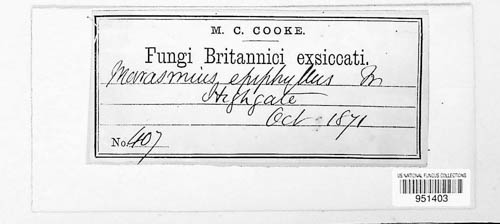 M. C. COOKE.
Fungi Britannici exsiccati.
Marasmius epiphyllus Fr
Highgate
Oct 1871
No. 407
US NATIONAL FUNGUS COLLECTIONS
951403